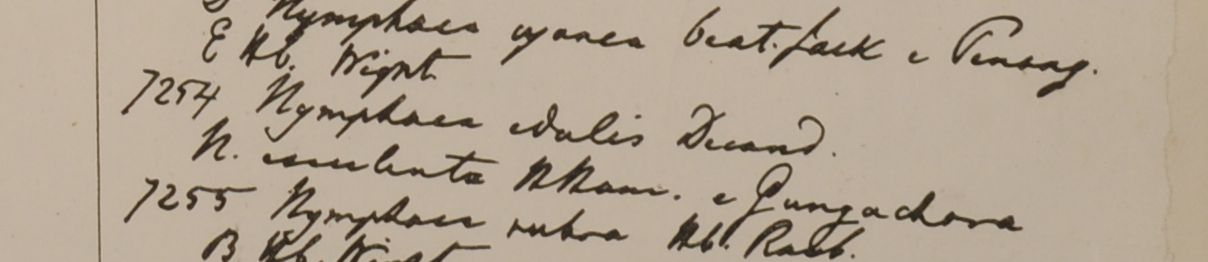 Nymphaea cyanea beat. Jack e Penang.
E Hb. Wight
7254 Nymphaea edulis Decand.
N. esculenta H Ham. e Gungachora
7255 Nymphaea rubra Hb. Roxb.
B Hb. Wight